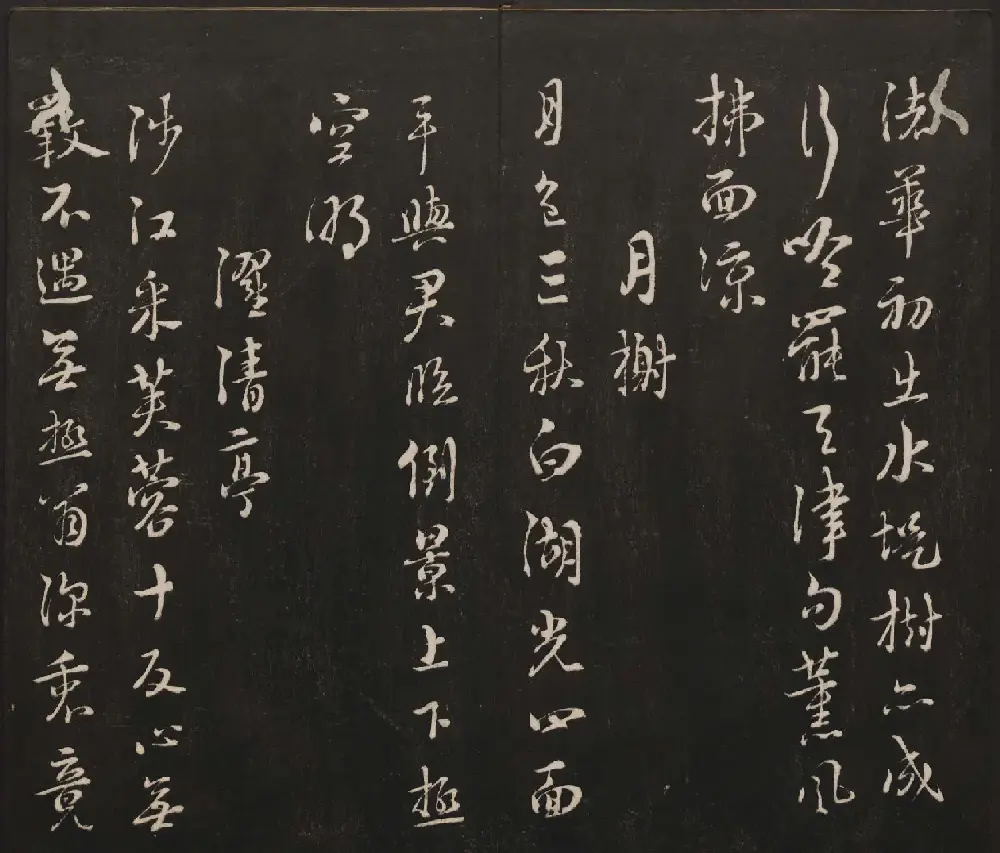 華初生水堤樹亦成
行吟罷天津句薰風
拂面涼
月榭
月色三秋白湖光四面
平與君臨倒景上下極
空明
濯清亭
涉江采芙蓉十反心無
斁不遇無極翁深衷竟